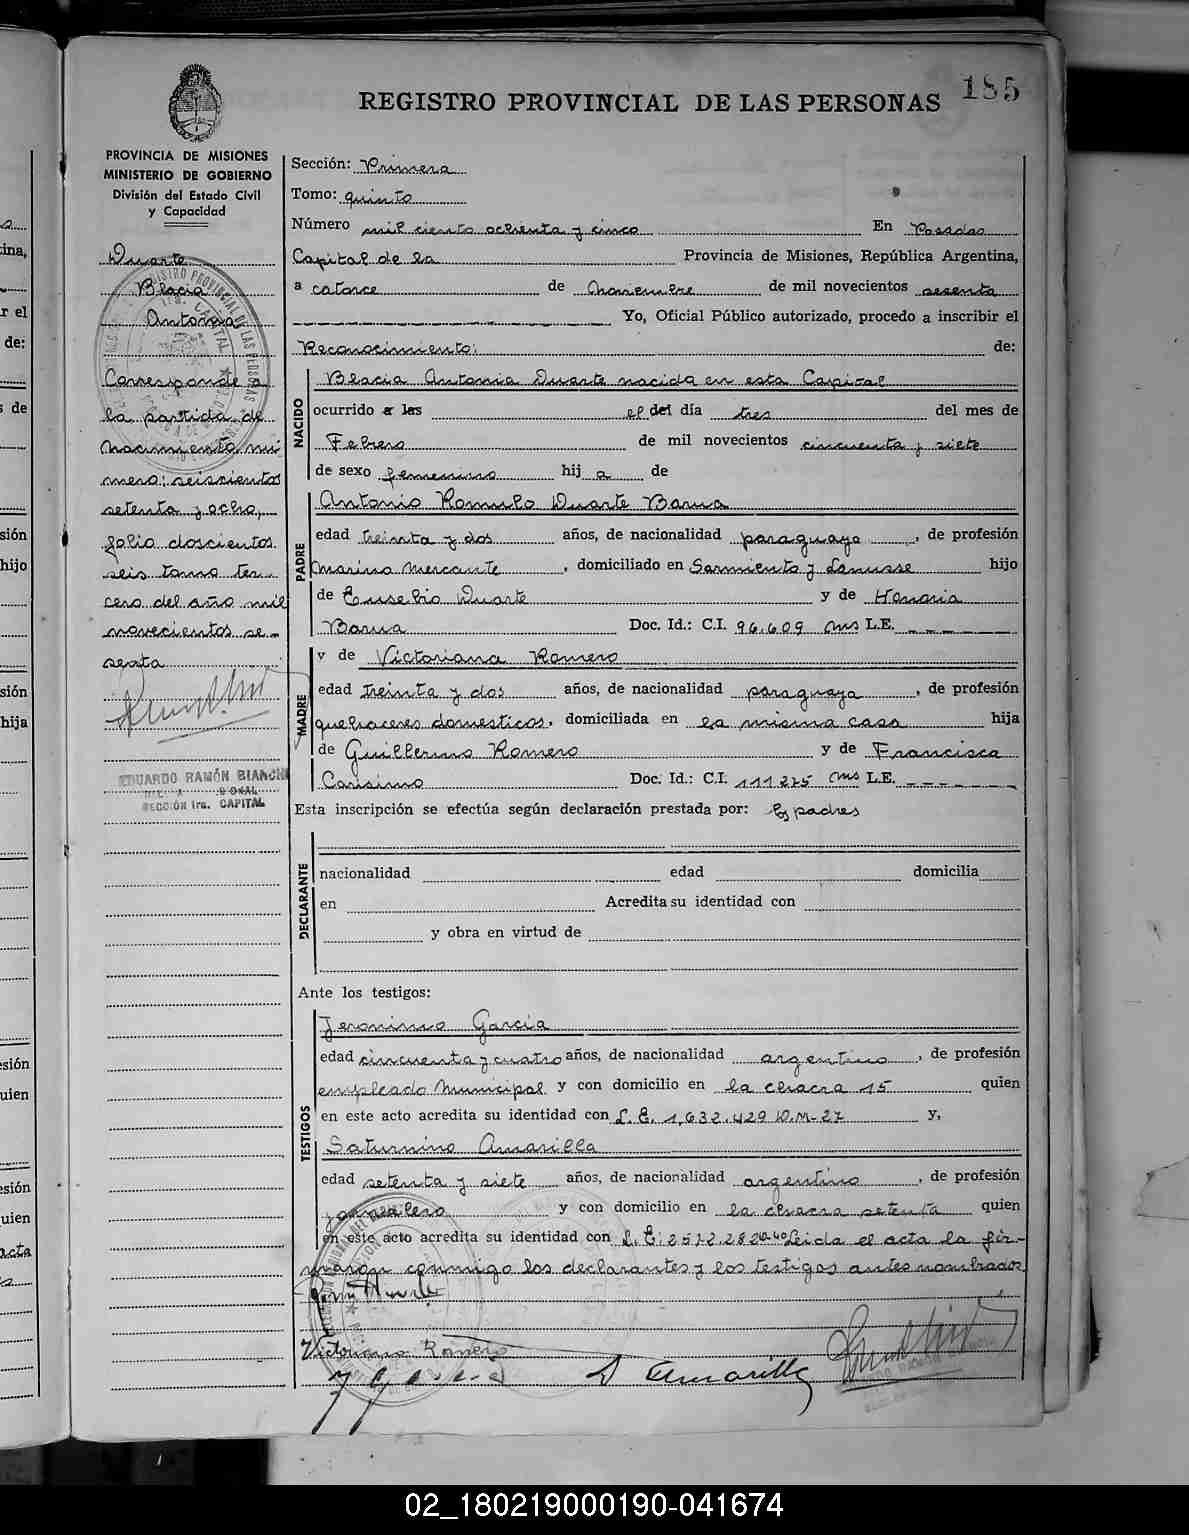 185
REGISTRO PROVINCIAL DE LAS PERSONAS
PROVINCIA DE MISIONES
MINISTERIO DE GOBIERNO
División del Estado Civil
y Capacidad
Duarte
Blacia
Antonia
Corresponde a
la partida de
nacimiento nú
mero: seiscientos
setenta y ocho,
folio doscientos
seis tomo ter-
cero del año mil
novecientos se-
senta
EDUARDO RAMÓN BIANCHI
SECCIÓN 1ra. CAPITAL
Sección: Primera
Tomo: quinto
Número mil ciento ochenta y cinco En Posadas
Capital de la Provincia de Misiones, República Argentina,
a catorce de Noviembre de mil novecientos sesenta
Yo, Oficial Público autorizado, procedo a inscribir el
Reconocimiento: de:
NACIDO
Blacia Antonia Duarte nacida en esta Capital
ocurrido a las el del día tres del mes de
Febrero de mil novecientos cincuenta y siete
de sexo femenino hij a de
PADRE
Antonio Romulo Duarte Barua
edad treinta y dos años, de nacionalidad paraguayo, de profesión
Marino Mercante, domiciliado en Sarmiento y Lanusse hijo
de Eusebio Duarte y de Honoria
Barua Doc. Id.: C.I. 96.609 Mns L.E.
MADRE
y de Victoriana Romero
edad treinta y dos años, de nacionalidad paraguaya, de profesión
quehaceres domesticos, domiciliada en la misma casa hija
de Guillermo Romero y de Francisca
Carisimo Doc. Id.: C.I. 111275 Mns L.E.
Esta inscripción se efectúa según declaración prestada por: los padres
DECLARANTE
nacionalidad edad domicilia
en Acredita su identidad con
y obra en virtud de
Ante los testigos:
TESTIGOS
Jeronimo Garcia
edad cincuenta y cuatro años, de nacionalidad argentino, de profesión
empleado Municipal y con domicilio en la chacra 15 quien
en este acto acredita su identidad con L.E. 1,632.429 D.M-27 y,
Saturnino Amarilla
edad setenta y siete años, de nacionalidad argentino, de profesión
jornalero y con domicilio en la chacra setenta quien
en este acto acredita su identidad con L.E: 2522.282 Leida el acta la fir-
maron conmigo los declarantes y los testigos antes nombrados
Victoriana Romero
J Garcia S Amarilla
02_180219000190-041674